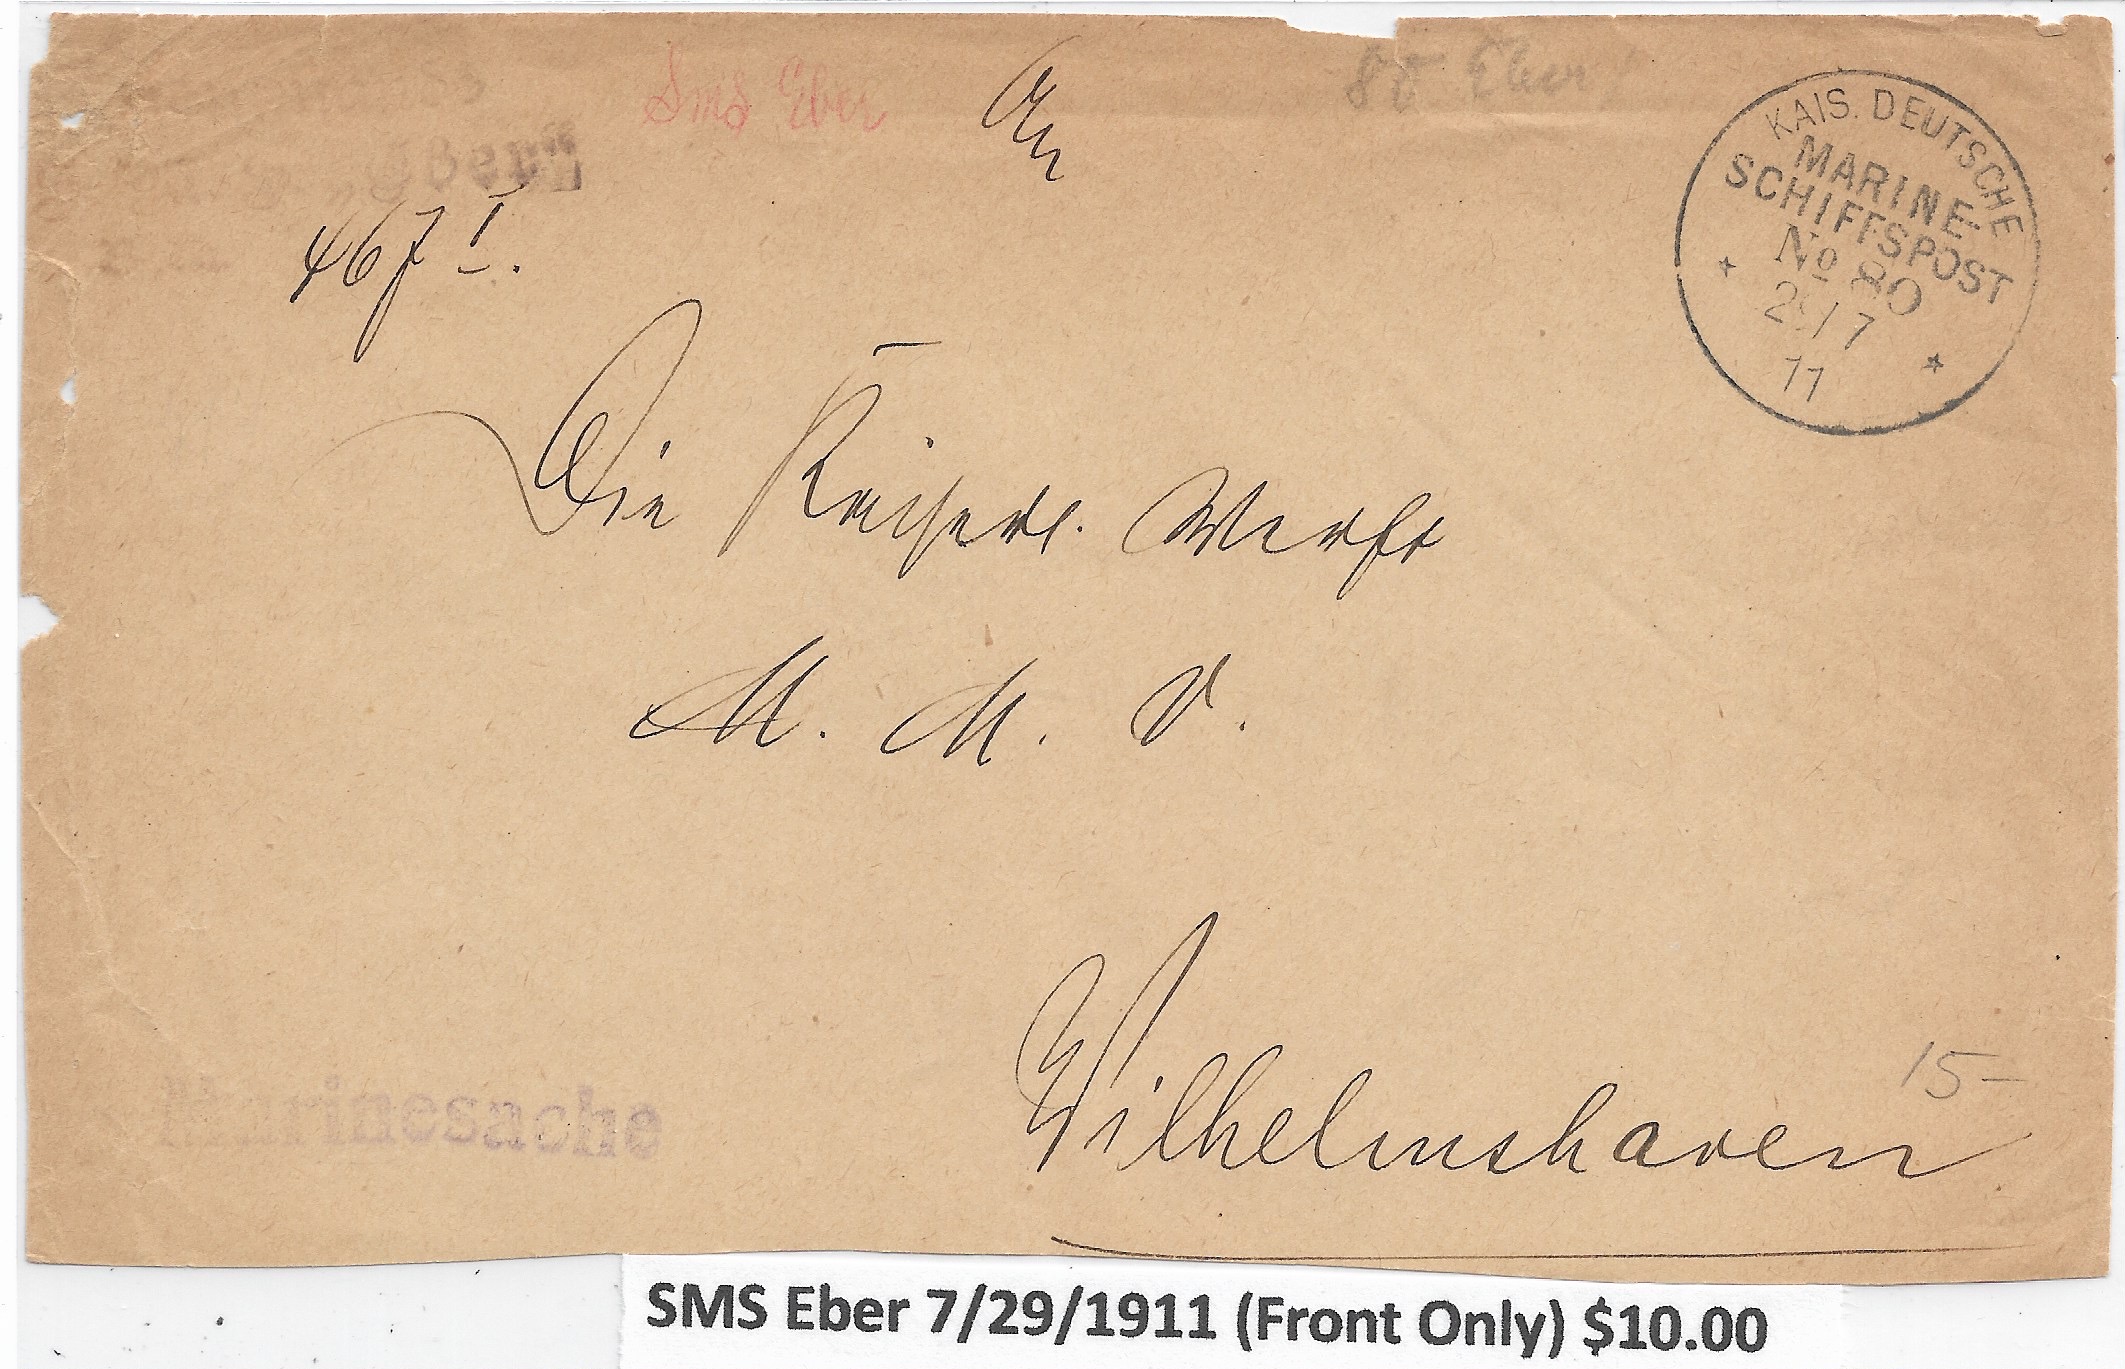 Sms Eber
An
80 Eber
KAIS. DEUTSCHE
MARINE-
SCHIFFSPOST
No 80
29/7
11
467 I.
Die Kaiserl. Werft
M. M. V.
Wilhelmshaven
15-
Marinesache
SMS Eber 7/29/1911 (Front Only) $10.00